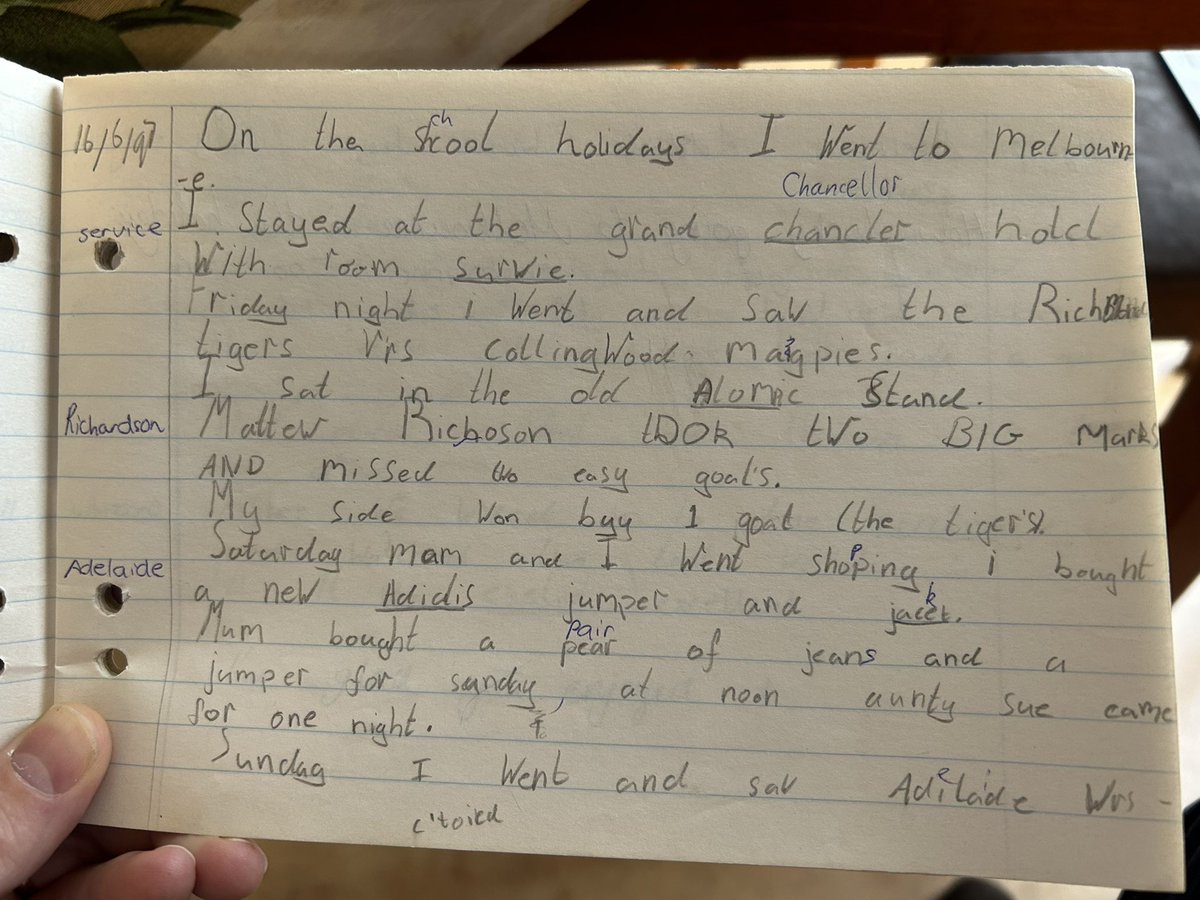 16/6/97 On the skool holidays I went to Melbourn
ch
-e.
Chancellor
service I stayed at the grand chancler hotel
With room survie.
Friday night I went and saw the Richmond
tigers Vrs collingwood magpies.
I sat in the old Alomic Stand.
Richardson Mattew Richoson tOOk two BIG Marks
AND missed two easy goal's.
My side won buy 1 goal (the tiger's).
Saturday mam and I went shoping i bought
p
Adelaide a new Adidis jumper and jacet.
k
Mum bought a pear of jeans and a
pair
jumper for sunday, at noon aunty sue came
for one night.
Sunday I went and saw Adilaide Vrs -
e